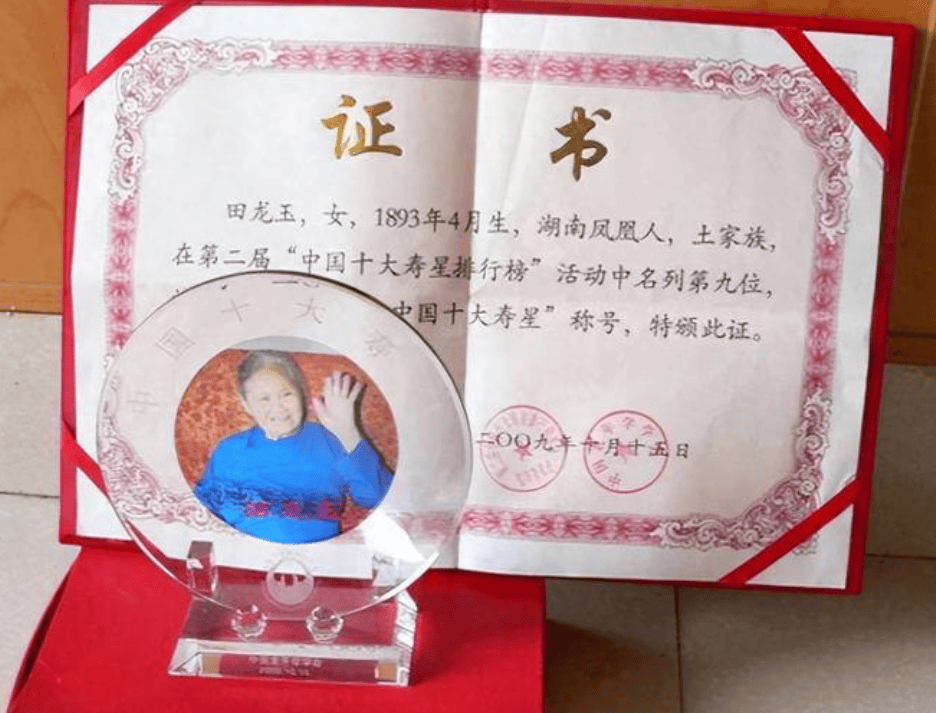 证 书
田龙玉，女，1893年4月生，湖南凤凰人，土家族，
在第二届“中国十大寿星排行榜”活动中名列第九位，
中国十大寿星”称号，特颁此证。
二〇〇九年十月十五日
中国十大寿